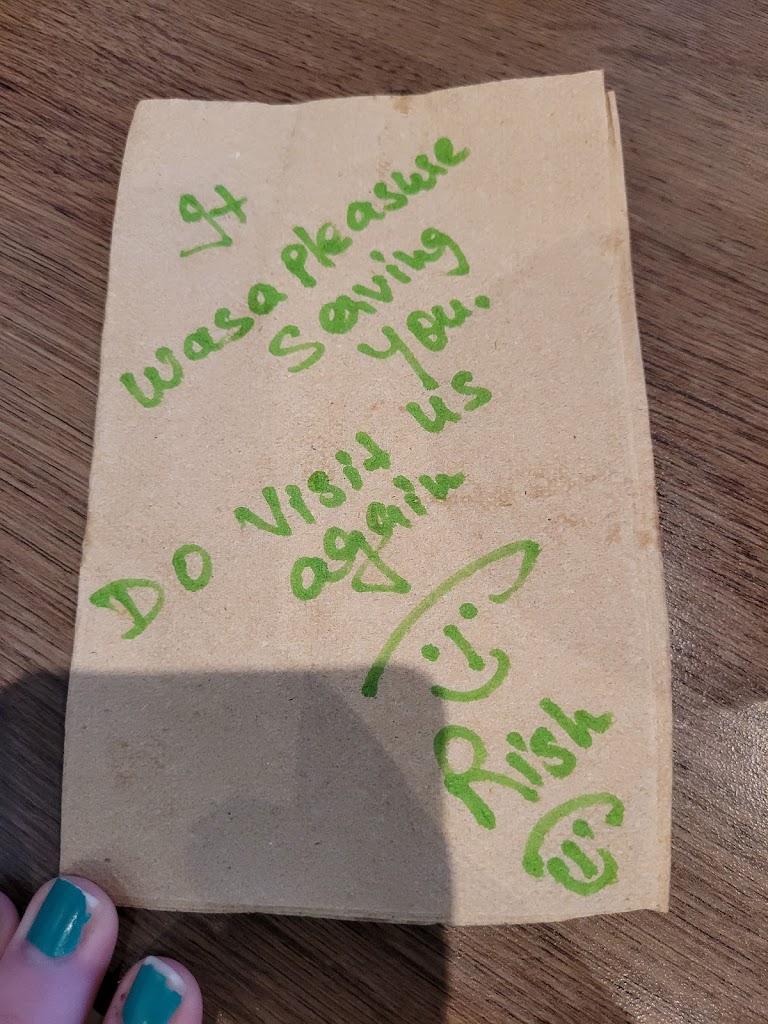 It
was a pleasure
serving
you.
Do visit us
again
Rish